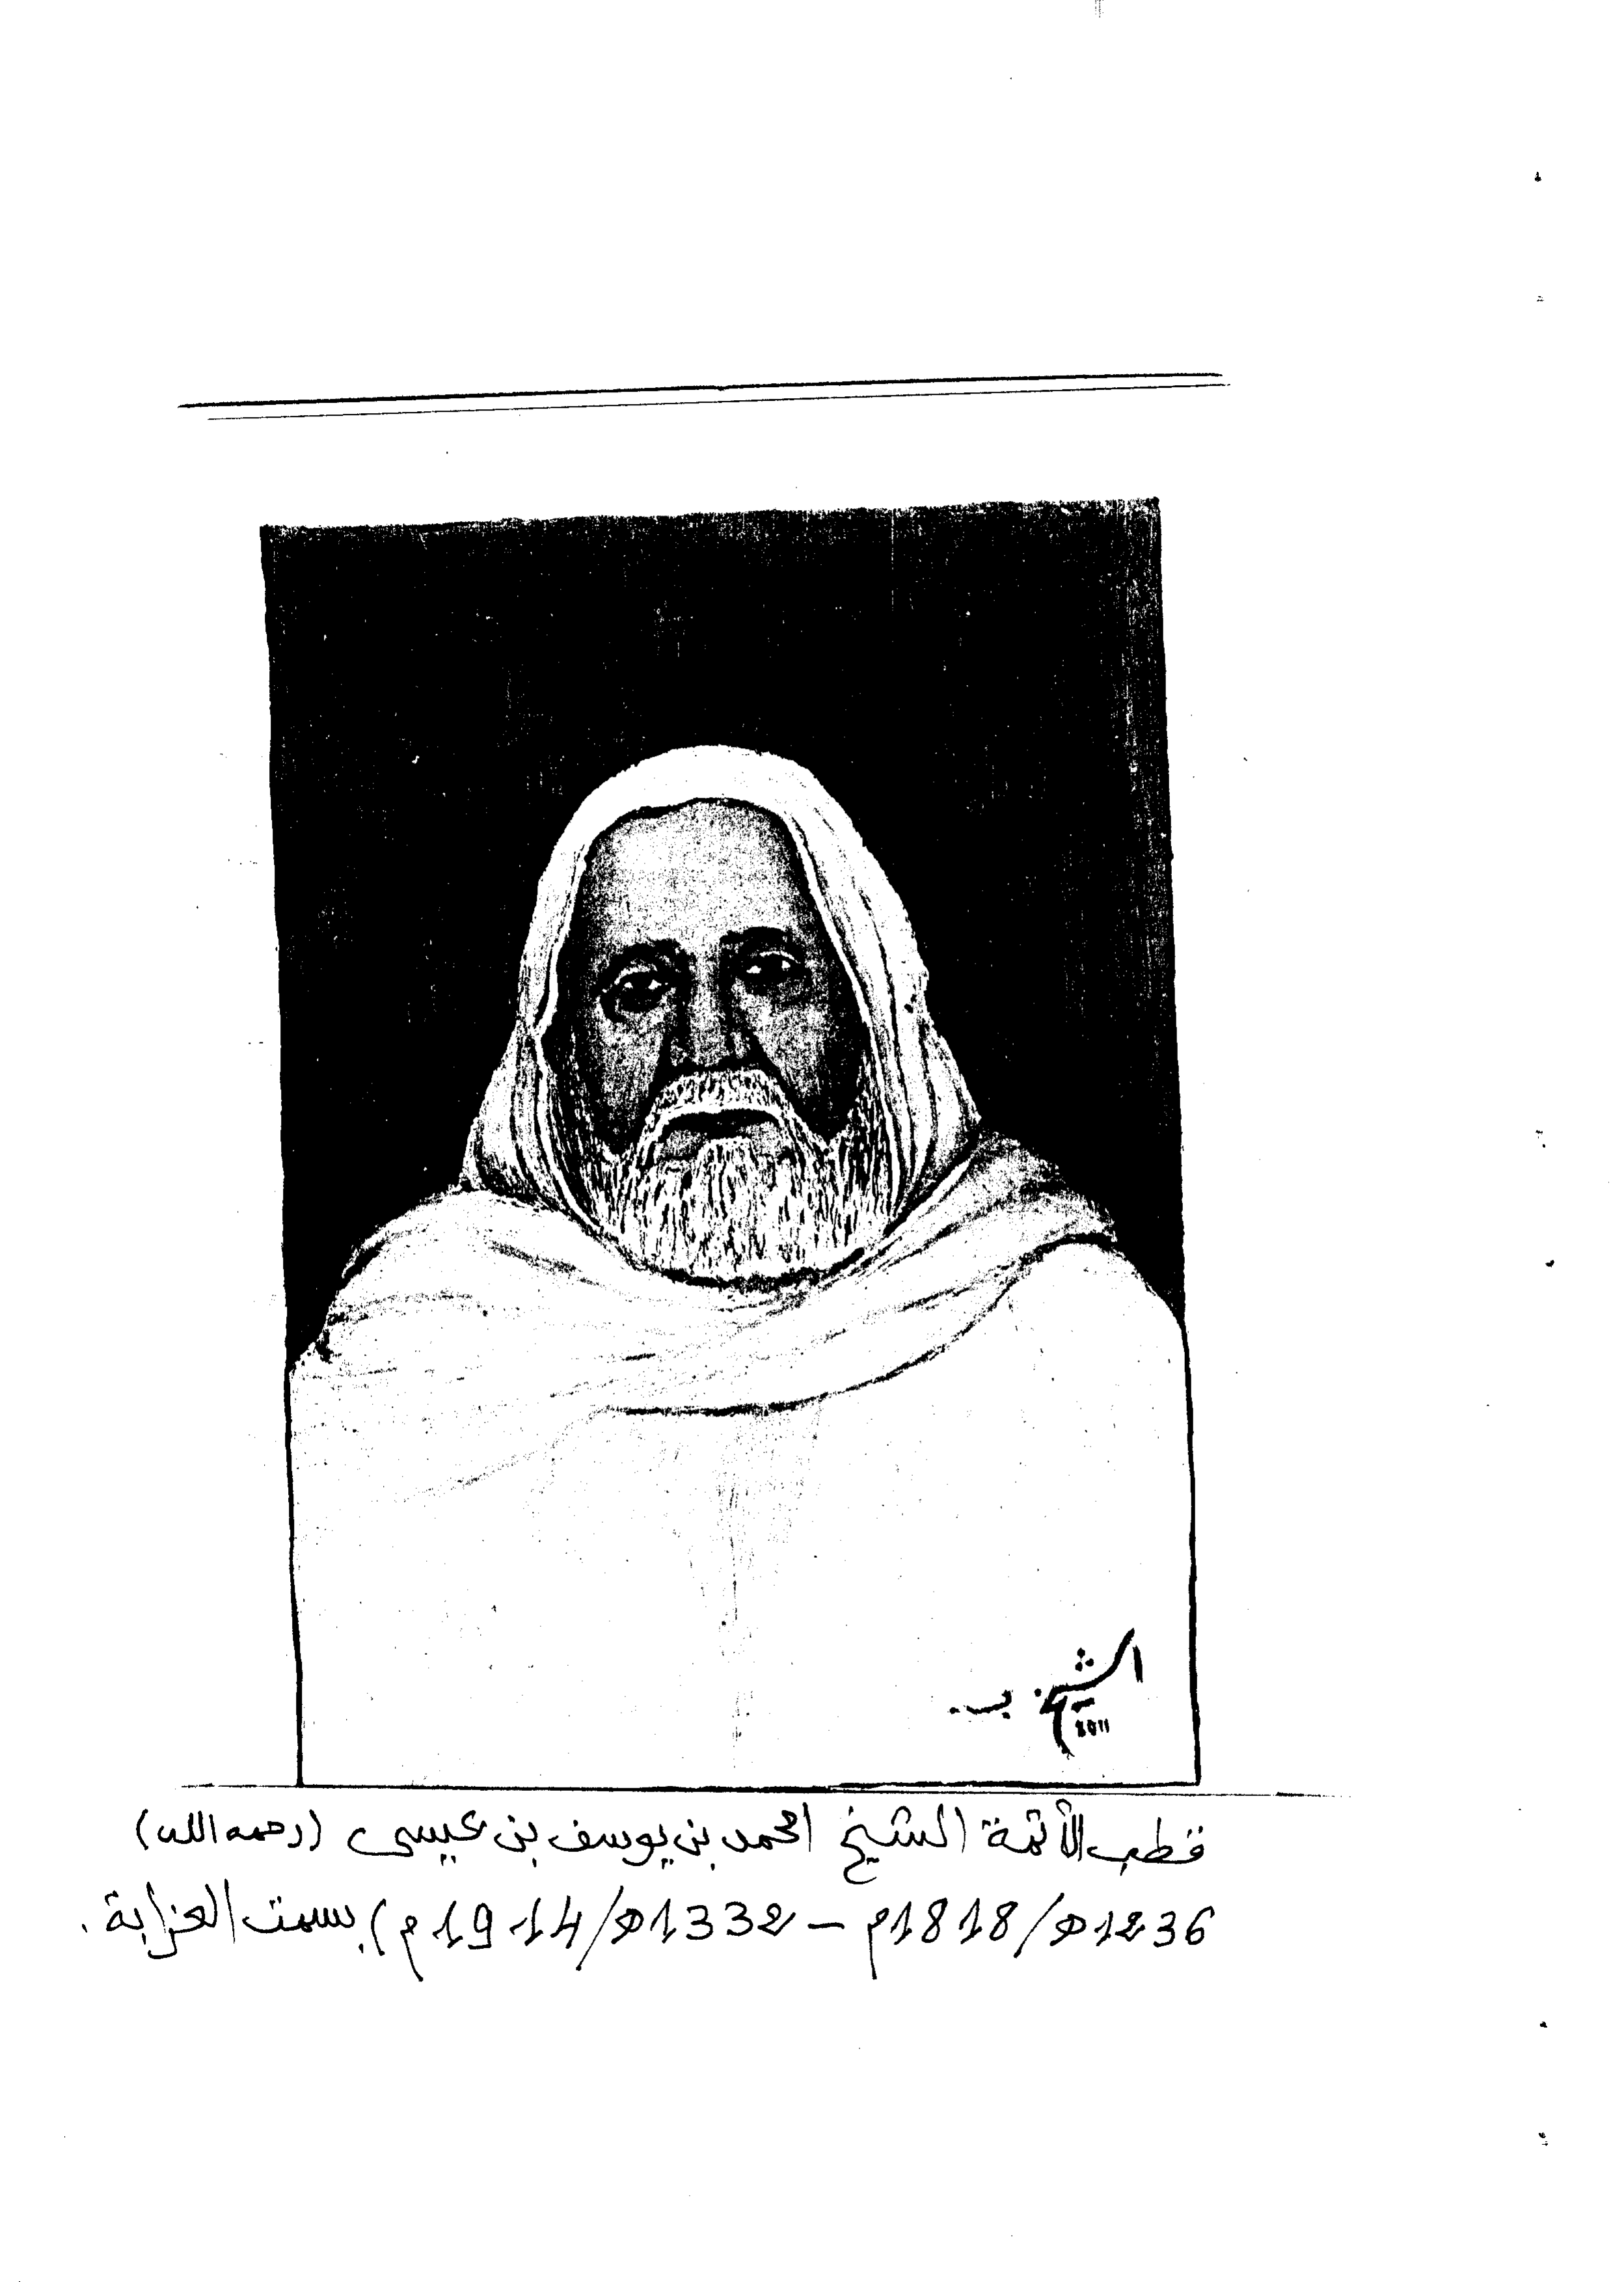 الشيخ ب.
2011
قطب الأئمة الشيخ امحمد بن يوسف بن عيسى (رحمه الله)
1236ه/1818م - 1332ه/1914م) بسمت العزابة.